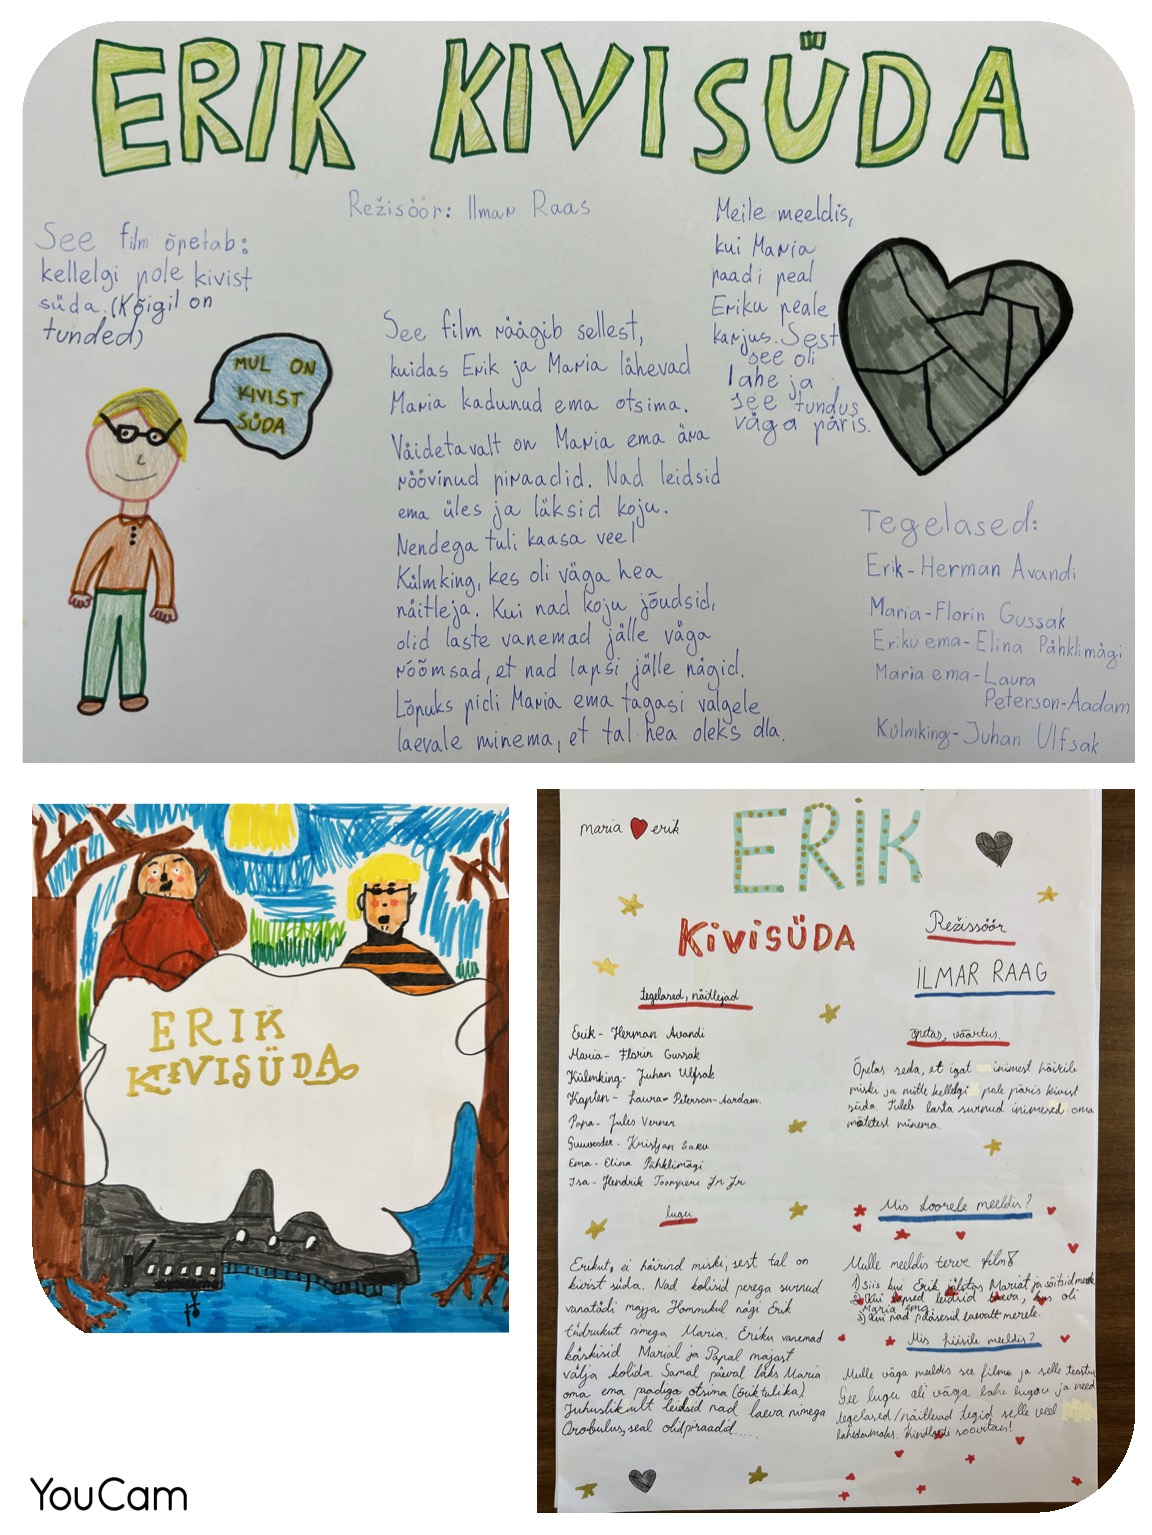 ERIK KIVISÜDA
Režisöör: Ilmar Raas
See film õpetab:
kellelgi pole kivist
süda. (Kõigil on
tunded)
MUL ON
KIVIST
SÜDA
See film räägib sellest,
kuidas Erik ja Maria lähevad
Maria kadunud ema otsima.
Väidetavalt on Maria ema ära
röövinud piraadid. Nad leidsid
ema üles ja läksid koju.
Nendega tuli kaasa veel
Külmking, kes oli väga hea
näitleja. Kui nad koju jõudsid,
olid laste vanemad jälle väga
rõõmsad, et nad lapsi jälle nägid.
Lõpuks pidi Maria ema tagasi valgele
laevale minema, et tal hea oleks olla.
Meile meeldis,
kui Maria
paadi peal
Eriku peale
karjus. Sest
see oli
lahe ja
see tundus
väga päris.
Tegelased:
Erik-Herman Avandi
Maria-Florin Gussak
Eriku ema-Elina Pähklimägi
Maria ema-Laura
Peterson-Aadam
Külmking-Juhan Ulfsak
ERIK
KIVISÜDA
maria erik
ERIK
KiviSÜDA
Režissöör
ILMAR RAAG
tegelased, näitlejad
Erik- Herman Avandi
Maria- Florin Gussak
Külmking- Juhan Ulfsak
Kapten- Laura-Peterson-Aardam.
Papa- Jules Verner
Kristjan Saru
Ema- Elina Pähklimägi
Isa- Hendrik Toompere Jr Jr
lugu
Erikut ei häirind miski, sest tal on
kivist süda. Nad kolisid perega surnud
vanatädi majja Hommikul nägi Erik
tüdrukut nimega Maria. Eriku vanemad
käskisid Marial ja Papal majast
välja kolida. Samal päeval läks Maria
oma ema paadiga otsima (õiktulika)
Juhuslikult leidsid nad laeva nimega
Orobulus, seal olid piraadid.....
õpetas, väärtus.
Õpetas seda, et igat inimest häirib
miski ja mitte kellelgi pole päris kivist
süda. Tuleb lasta surnud inimesed oma
mõtetest minema.
Mis Loorele meeldis?
Mulle meeldis terve film
1) siis kui Erik jälitas Mariat ja sõitsid
2) Kui lapsed leidsid laeva, kus oli
Maria ema
3) kui nad pääsesid laevalt merele.
Mis Liisile meeldis?
Mulle väga meeldis see filme ja selle teostus
See lugu oli väga lahe lugou ja need
tegelased/näitlevad tegid selle veel
lahedamaks. Kindlasti soovitan!
YouCam